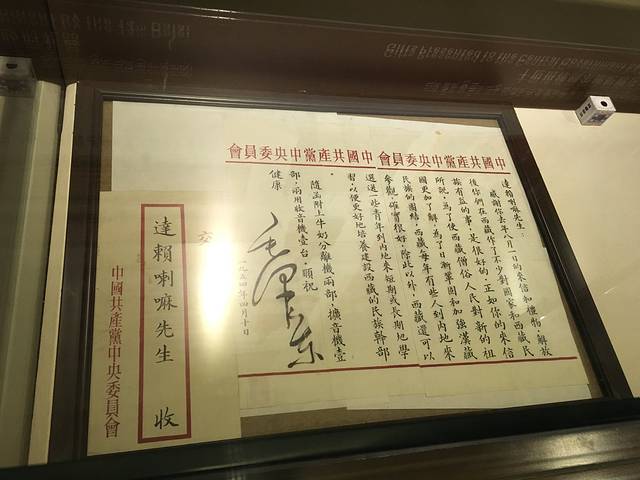 中國共產黨中央委員會 中國共產黨中央委員會
達賴喇嘛先生：
感謝你去年八月一日的來信和禮物。解放
後你們在西藏作了不少對國家和西藏民
族有益的事，是很好的，正如你的來信
所說，為了使西藏僧俗人民對新的祖
國更加了解，為了日漸鞏固和加強漢藏
民族的團結，西藏每年有些人到內地來
參觀，確實很好，除此以外，西藏還可以
選送一些青年到內地來短期或長期地學
習，以便更好地培養建設西藏的民族幹部
。
隨函附上牛奶分離機兩部，擴音機壹
部，兩用收音機壹台。順祝
健康
毛澤東
一九五四年四月十日
交
達賴喇嘛先生 收
中國共產黨中央委員會